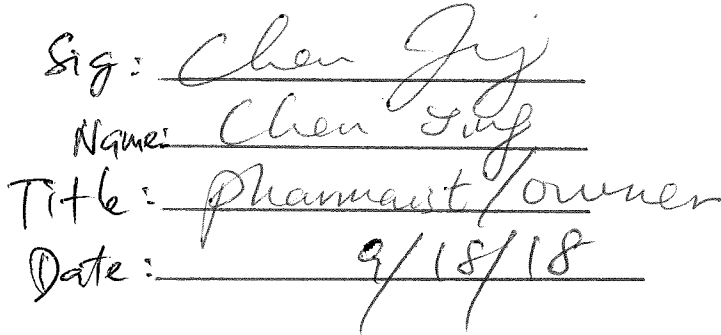 Sig: Chen
Name: Chen Ying
Title: pharmacist/owner
Date: 9/18/18